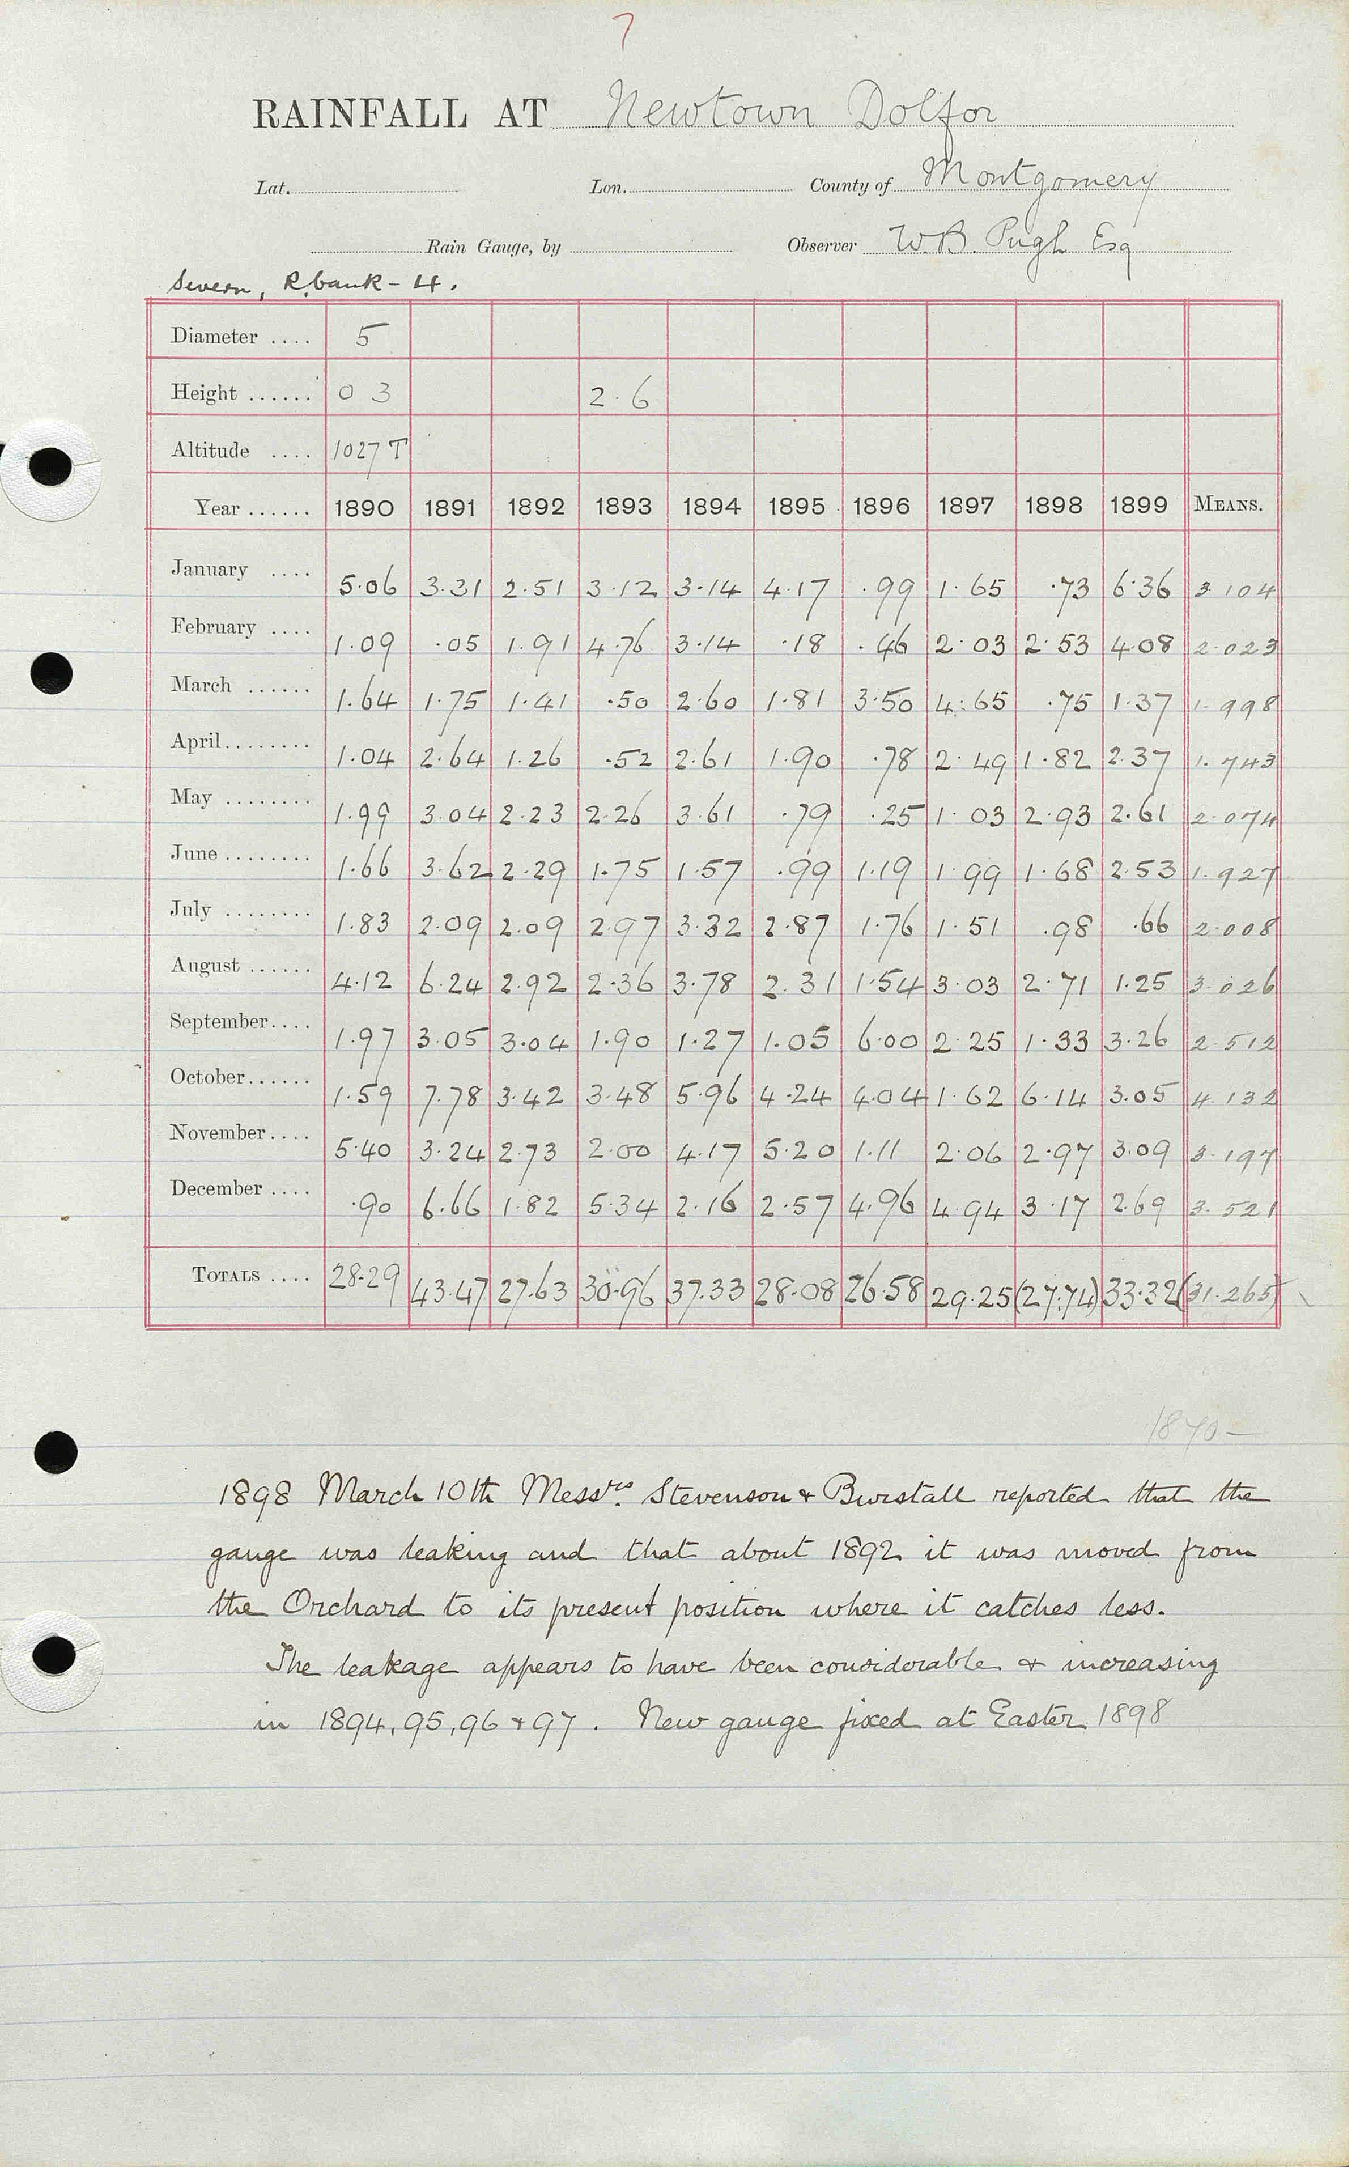 7
RAINFALL AT Newtown Dolfor
Lat. Lon. County of Montgomery
Rain Gauge, by Observer W.B. Pugh Esq
Severn, R. bank - 4.
Diameter .... 5
Height ...... 0 3 2.6
Altitude .... 1027 T
Year ...... 1890 1891 1892 1893 1894 1895 1896 1897 1898 1899 MEANS.
January .... 5.06 3.31 2.51 3.12 3.14 4.17 .99 1.65 .73 6.36 3.104
February .... 1.09 .05 1.91 4.76 3.14 .18 .46 2.03 2.53 4.08 2.023
March ...... 1.64 1.75 1.41 .50 2.60 1.81 3.50 4.65 .75 1.37 1.998
April........ 1.04 2.64 1.26 .52 2.61 1.90 .78 2.49 1.82 2.37 1.743
May ........ 1.99 3.04 2.23 2.26 3.61 .79 .25 1.03 2.93 2.61 2.074
June ........ 1.66 3.62 2.29 1.75 1.57 .99 1.19 1.99 1.68 2.53 1.927
July ........ 1.83 2.09 2.09 2.97 3.32 2.87 1.76 1.51 .98 .66 2.008
August ...... 4.12 6.24 2.92 2.36 3.78 2.31 1.54 3.03 2.71 1.25 3.026
September.... 1.97 3.05 3.04 1.90 1.27 1.05 6.00 2.25 1.33 3.26 2.512
October...... 1.59 7.78 3.42 3.48 5.96 4.24 4.04 1.62 6.14 3.05 4.132
November.... 5.40 3.24 2.73 2.00 4.17 5.20 1.11 2.06 2.97 3.09 3.197
December .... .90 6.66 1.82 5.34 2.16 2.57 4.96 4.94 3.17 2.69 3.521
TOTALS .... 28.29 43.47 27.63 30.96 37.33 28.08 26.58 29.25 (27.74) 33.32 (31.265)
1870-
1898 March 10th Messrs. Stevenson & Burstall reported that the
gauge was leaking and that about 1892 it was moved from
the Orchard to its present position where it catches less.
The leakage appears to have been considerable & increasing
in 1894, 95, 96 & 97. New gauge fixed at Easter 1898